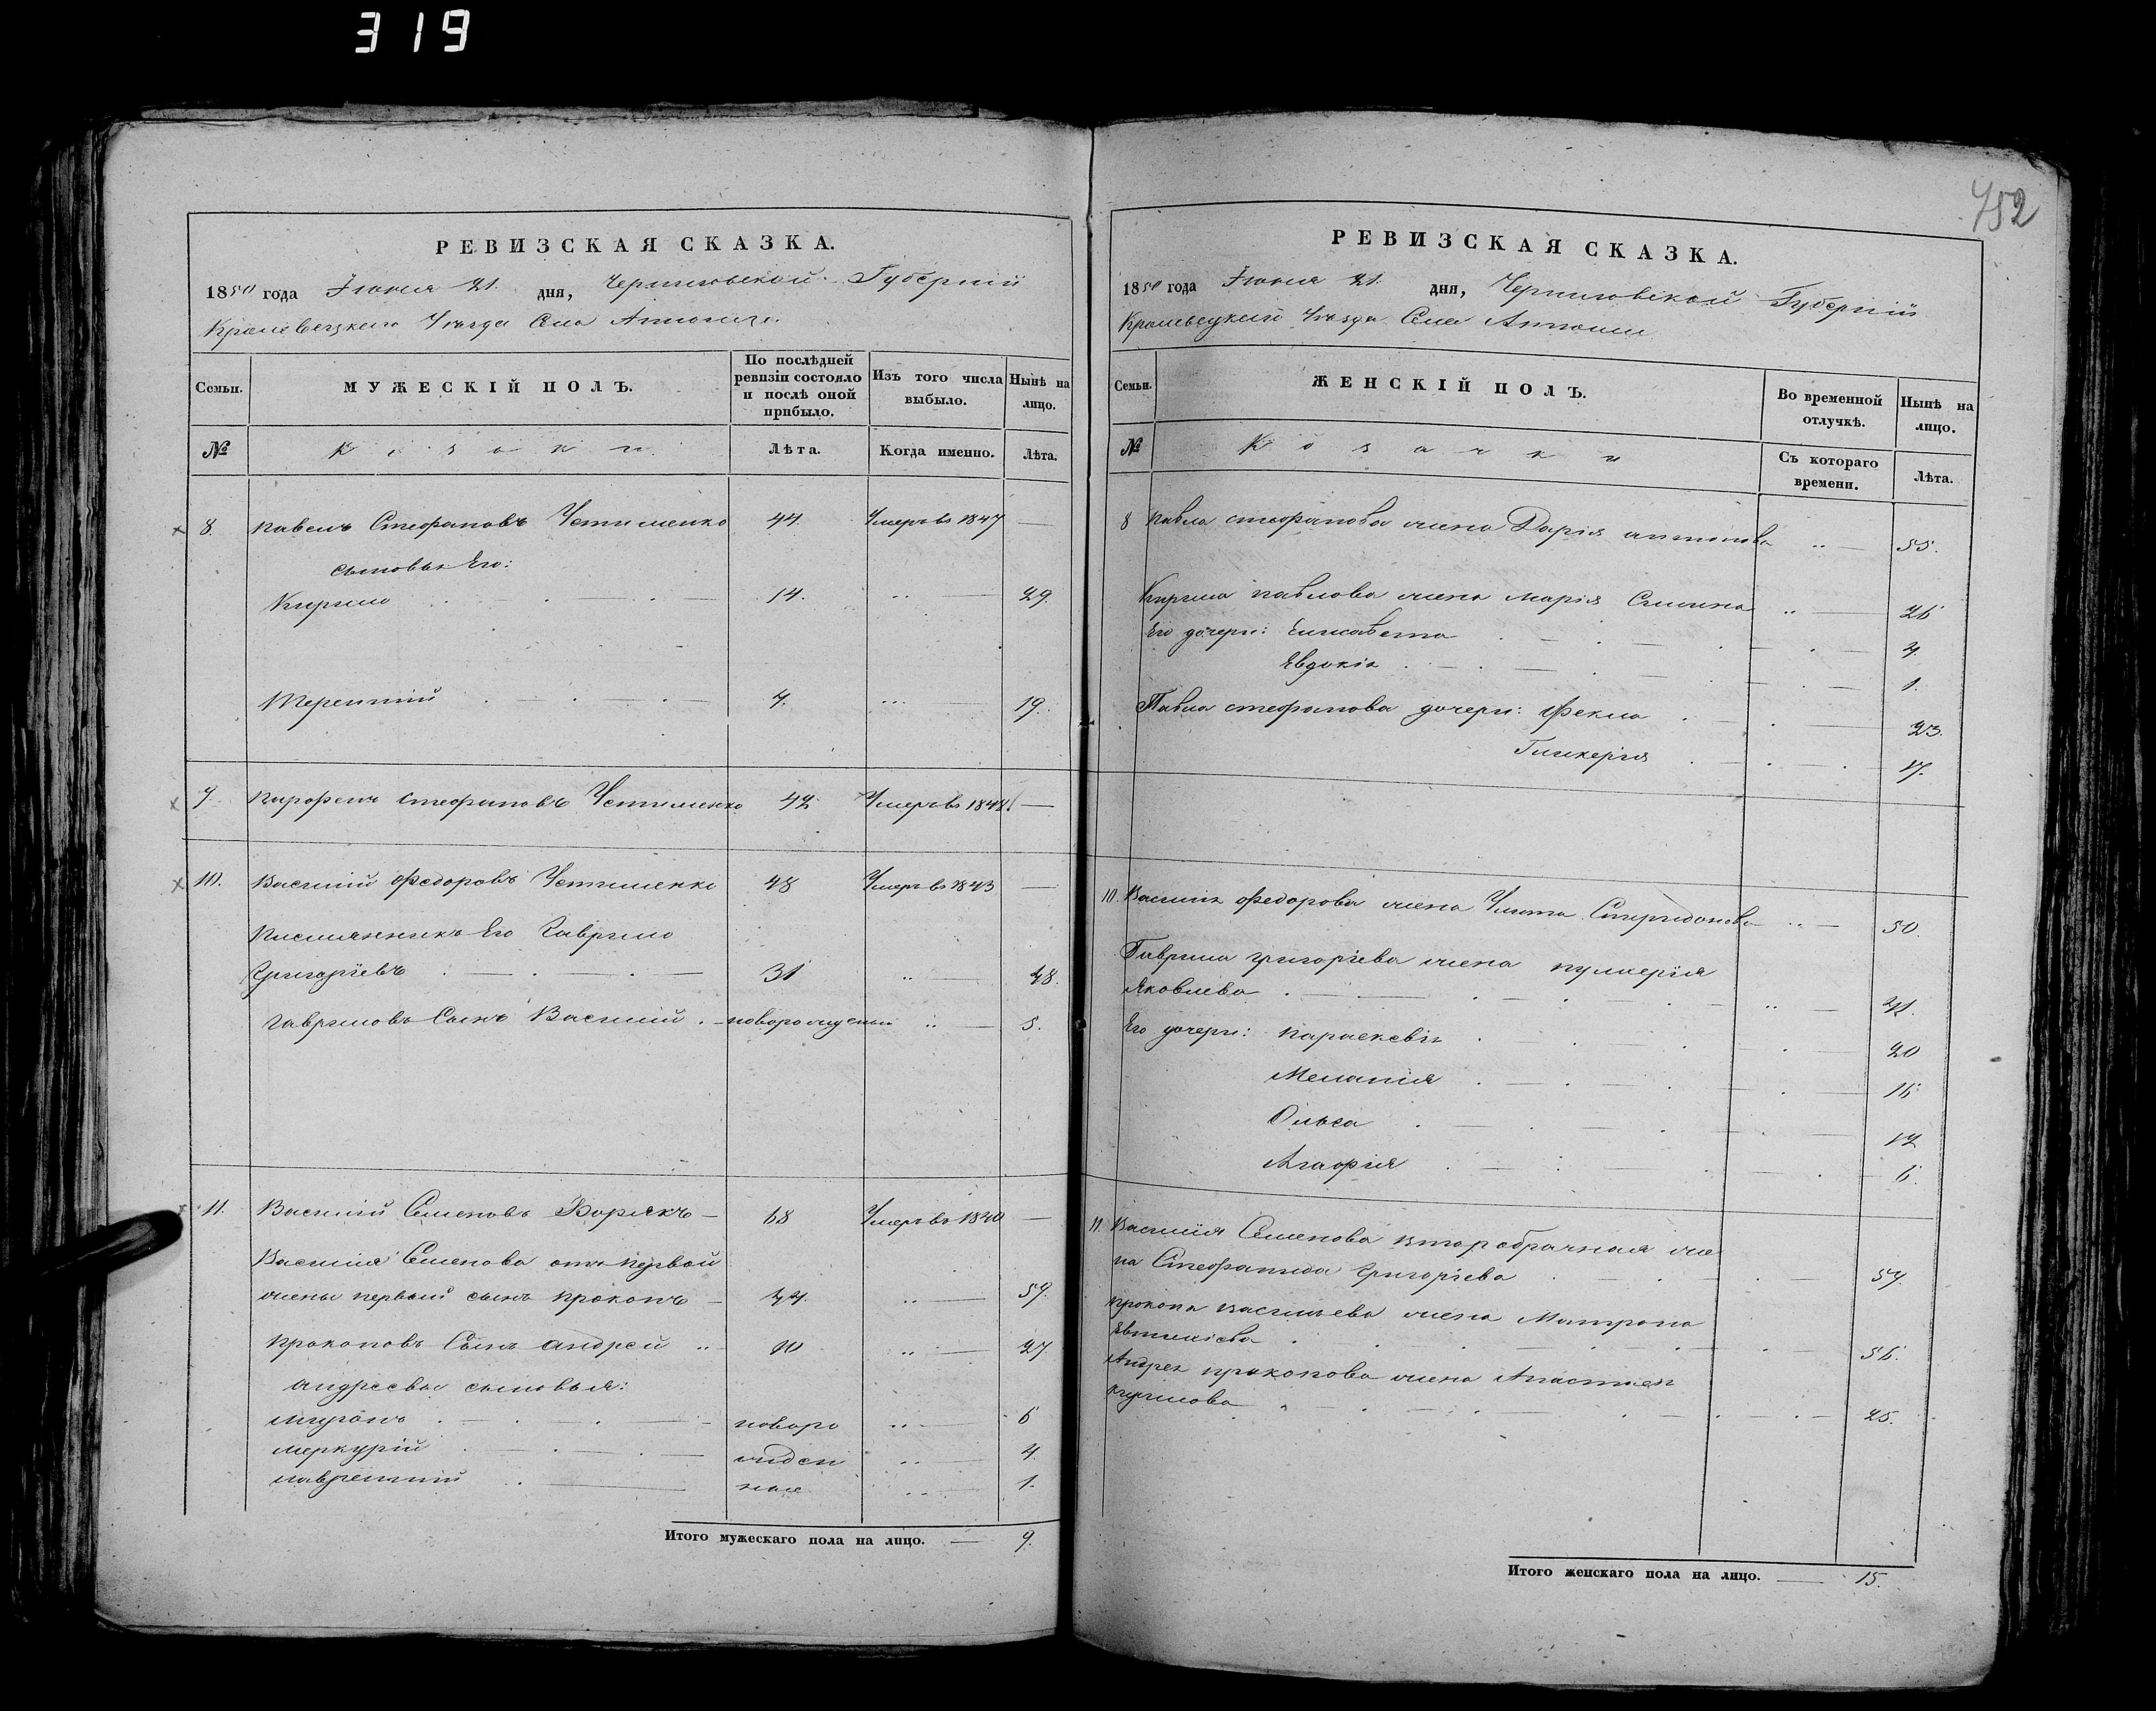 319
752
РЕВИЗСКАЯ СКАЗКА.
1850 года Іюня 21. дня, Черниговской Губерніи
Кролевецкаго Уѣзда Села
МУЖЕСКІЙ ПОЛЪ.
Семьи.
По послѣдней ревизіи состояло и послѣ оной прибыло.
Изъ того числа выбыло.
Нынѣ на лицо.
№ Козаки. Лѣта. Когда именно. Лѣта.
8. Павелъ Стефановъ Устименко 44. Умеръ въ 1847 —
сыновья Его:
Кирило 14. „ — 29.
Терентій 4. „ — 19.
9. Парфенъ Стефановъ Устименко 42 Умеръ въ —
10. Василій Федоровъ Устименко 48 Умеръ въ 1843 —
Племянникъ Его Гаврило
Григоріевъ „ —
Гавриловъ Сынъ Василій новорожденый „ — 5.
11. Василій Семеновъ 68 Умеръ въ 1840 —
Василія Семенова отъ первой
жены первый сынъ Прокопъ „ — 59.
Прокоповъ Сынъ Андрей 10 „ — 27
Андреевы сыновья:
новоро „ — 6
Меркурій жден „ — 4.
Лаврентій ные „ — 1.
Итого мужескаго пола на лицо. — 9.
РЕВИЗСКАЯ СКАЗКА.
1850 года Іюня 21. дня, Черниговской Губерніи
Кролевецкаго Уѣзда Села
Семьи.
ЖЕНСКІЙ ПОЛЪ.
Во временной отлучкѣ.
Нынѣ на лицо.
№ Козачки Съ котораго времени. Лѣта.
8 Павла Стефанова жена Дарія Антонова „ — 55.
Кирила Павлова жена Марія „ — 26
Его дочери: Елисавета 4.
Евдокія 1.
Павла Стефанова дочери: Фекла 23.
Гликерія 17.
10. Василія Федорова жена Улита Спиридонова „ — 50.
Гаврила Григоріева жена Пулхерія
Яковлева „ — 41.
Его дочери: Параскевія 20
Меланія 16
Ольга 12
Агафія 6.
11. Василія Семенова второбрачная же
на Стефанида Григоріева 57.
Прокопа Васильева жена Матрона
Евтихіева 56.
Андрея Прокопова жена Анастасія
Кирилова 25.
Итого женскаго пола на лицо. — 15.